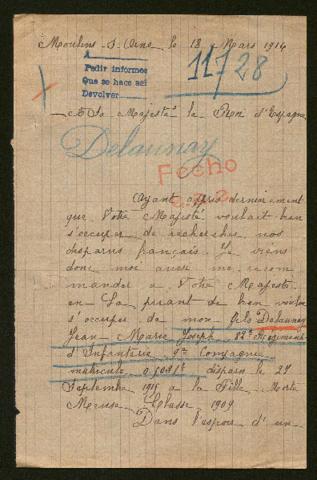 Moulins-s-Orne le 18 Mars 1916
Pedir informes
Que se hace así
Devolver
11728
A Sa Majesté le Roi d'Espagne
Delaunay
Fecho
Ayant appris dernièrement
que Votre Majesté voulait bien
s'occuper de rechercher nos
disparus français. Je viens
donc moi aussi me recom
mander a Votre Majesté
en La priant de bien vouloir
s'occuper de mon fils Delaunay
Jean-Marie Joseph 82e Régiment
d'Infanterie 9me Compagnie
matricule disparu le 27
Septembre 1915 a la Fille Morte
Meuse Classe 1909
Dans l'espoir d'un